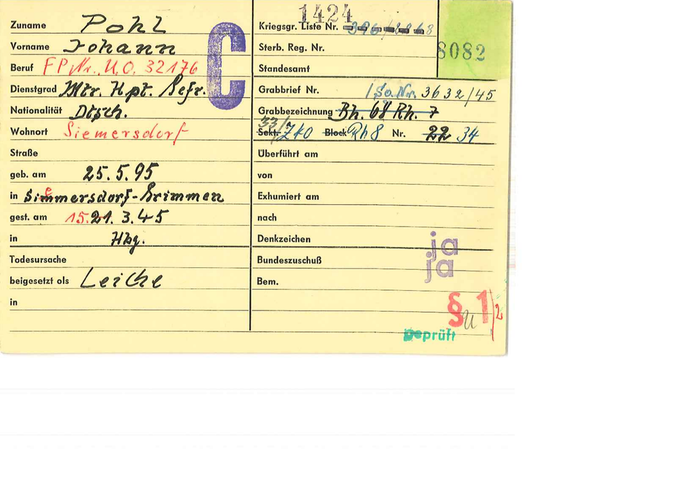 Zuname Pohl
Vorname Johann
Beruf FP Nr. U.O. 32176
Dienstgrad Mtr. Hpt. Gefr.
Nationalität Dtsch.
Wohnort Siemersdorf
Straße
geb. am 25.5.95
in Siemersdorf-Grimmen
gest. am 15. 21. 3.45
in Hbg.
Todesursache
beigesetzt als Leiche
in
C
1424
Kriegsgr. Liste Nr.
Sterb. Reg. Nr.
8082
Standesamt
Grabbrief Nr. 3632/45
Grabbezeichnung Bh. 68 Rh. 7
33/
Sekt. Z40 Block Rh 8 Nr. 22 34
Überführt am
von
Exhumiert am
nach
Denkzeichen ja
Bundeszuschuß ja
Bem.
§ 1/2
geprüft